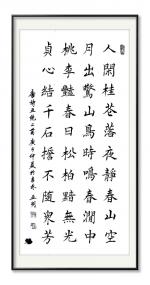 人閑桂花落夜靜春山空
月出驚山鳥時鳴春澗中
桃李豔春日松柏黯無光
貞心結千石不隨衆芳
唐詩五絕二首庚子仲夏於